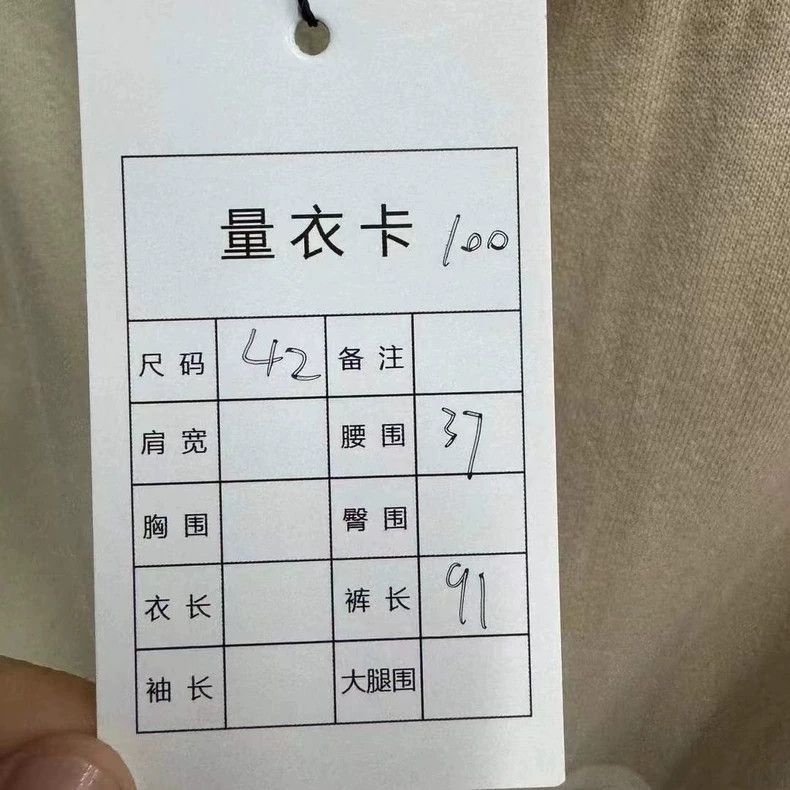 量衣卡 100
尺码 42 备注
肩宽 腰围 37
胸围 臀围
衣长 裤长 91
袖长 大腿围